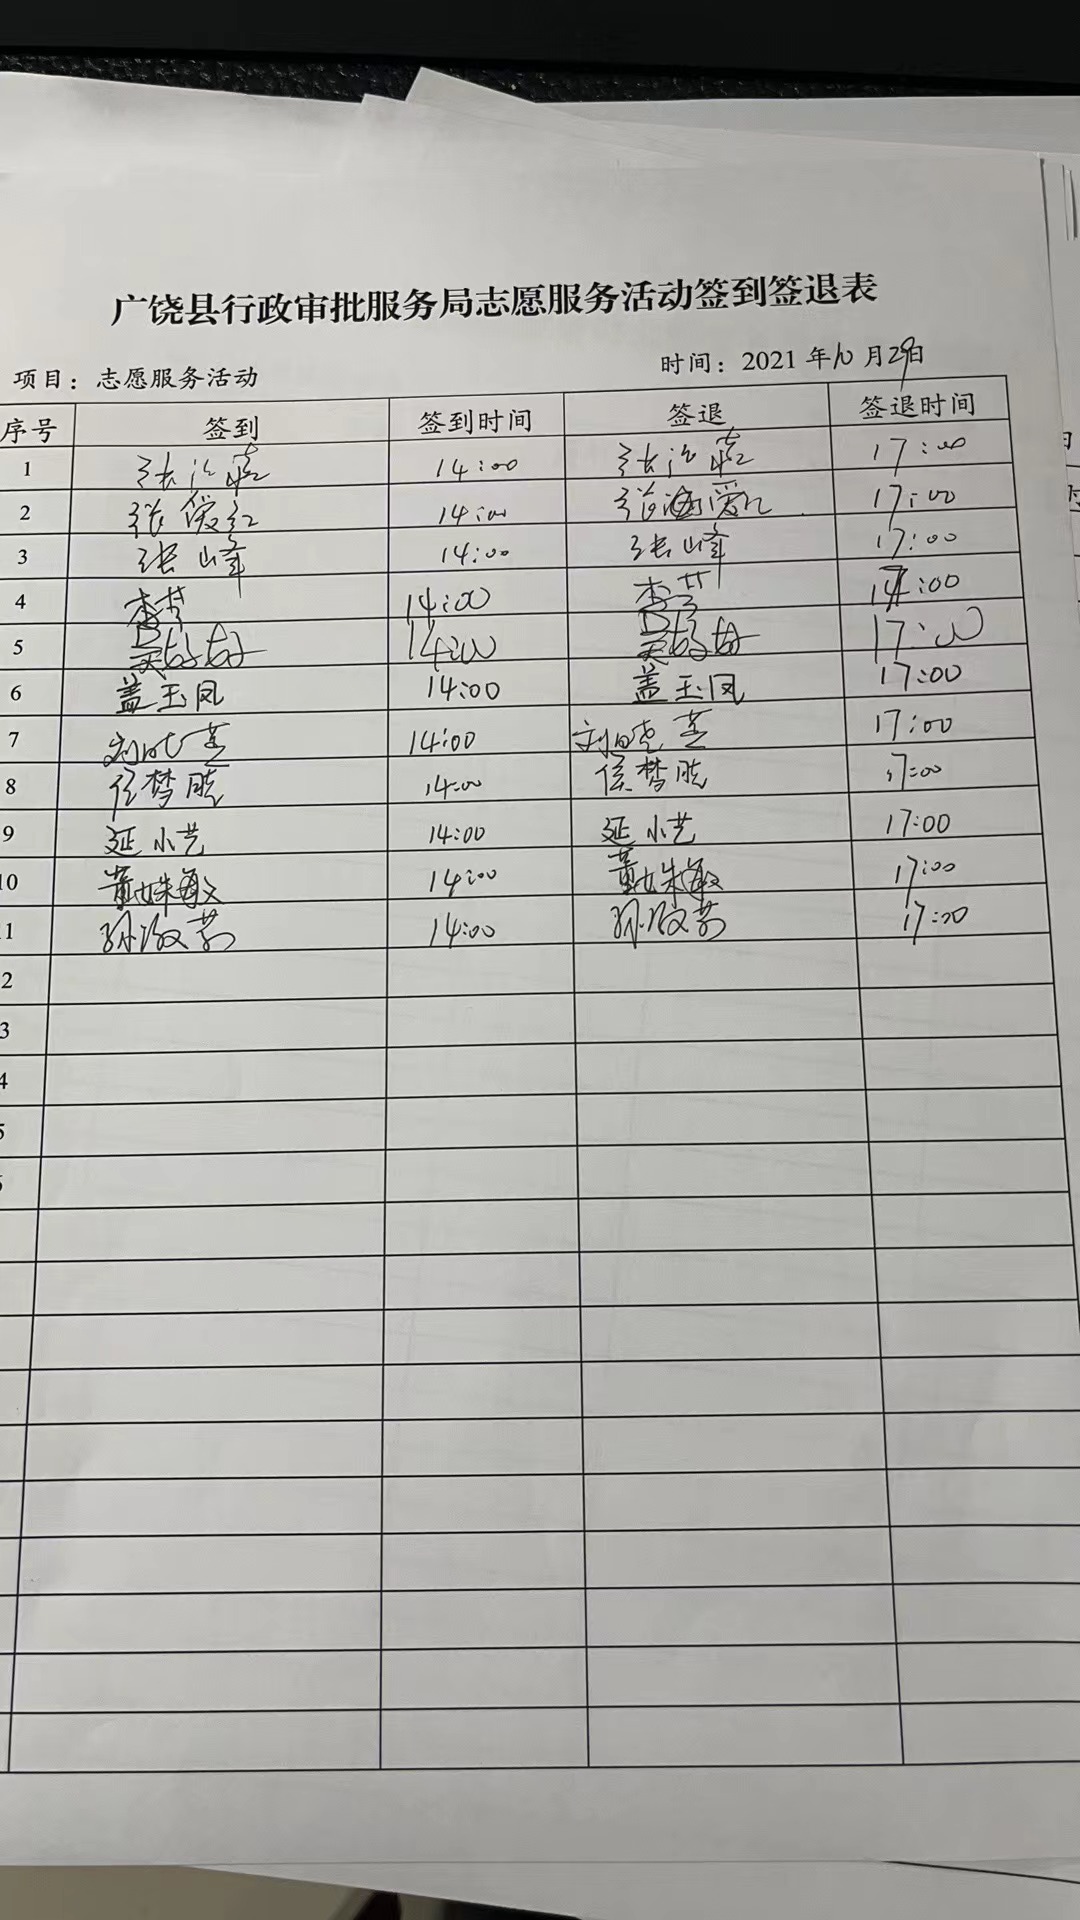 广饶县行政审批服务局志愿服务活动签到签退表
项目：志愿服务活动 时间：2021 年 10 月 29 日
序号 签到 签到时间 签退 签退时间
1 张 14:00 张 17:00
2 张爱红 14:00 张 17:00
3 张峰 14:00 张峰 17:00
4 李芳 14:00 李芳 17:00
5 吴好好 14:00 吴好好 17:00
6 盖玉凤 14:00 盖玉凤 17:00
7 刘晓芝 14:00 刘晓芝 17:00
8 侯梦晓 14:00 侯梦晓 17:00
9 延小艺 14:00 延小艺 17:00
10 董姝敏 14:00 董姝敏 17:00
11 孙 14:00 孙 17:00
2
3
4
5